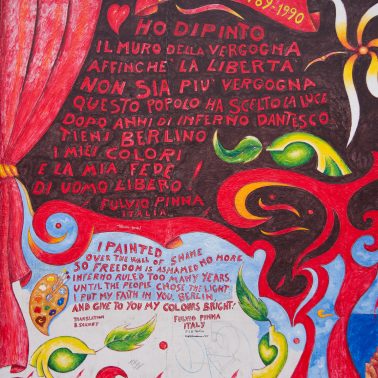 89-1990
HO DIPINTO
IL MURO DELLA VERGOGNA
AFFINCHE' LA LIBERTA'
NON SIA PIU' VERGOGNA
QUESTO POPOLO HA SCELTO LA LUCE
DOPO ANNI DI INFERNO DANTESCO
TIENI BERLINO
I MIEI COLORI
E LA MIA FEDE
DI UOMO LIBERO!
FULVIO PINNA
ITALIA
I PAINTED
OVER THE WALL OF SHAME
SO FREEDOM IS ASHAMED NO MORE
INFERNO RULED TOO MANY YEARS
UNTIL THE PEOPLE CHOSE THE LIGHT
I PUT MY FAITH IN YOU, BERLIN,
AND GIVE TO YOU MY COLOURS BRIGHT!
TRANSLATION
FULVIO PINNA
ITALY